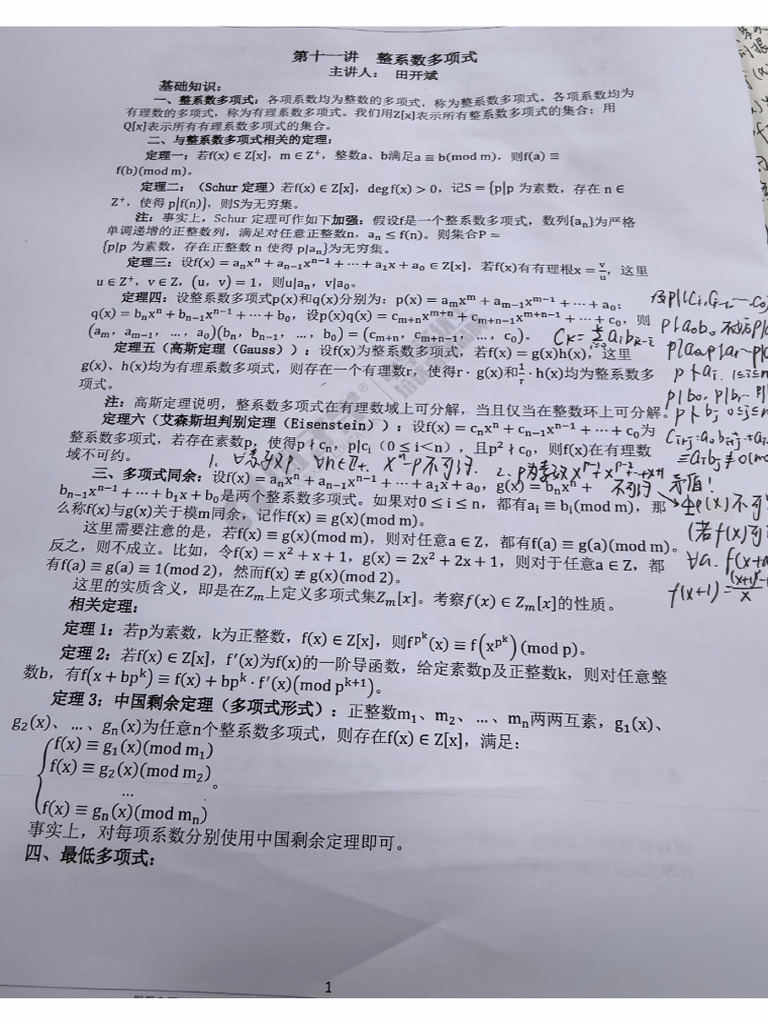 第十一讲　整系数多项式
主讲人：　田开斌
基础知识：
一、整系数多项式：各项系数均为整数的多项式，称为整系数多项式。各项系数均为
有理数的多项式，称为有理系数多项式。我们用Z[x]表示所有整系数多项式的集合；用
Q[x]表示所有有理系数多项式的集合。
二、与整系数多项式相关的定理：
定理一：若f(x) ∈ Z[x]，m ∈ Z⁺，整数a、b满足a ≡ b(mod m)，则f(a) ≡
f(b)(mod m)。
定理二：（Schur 定理）若f(x) ∈ Z[x]，deg f(x) > 0，记S = {p|p 为素数，存在 n ∈
Z⁺，使得 p|f(n)}，则S为无穷集。
注：事实上，Schur 定理可作如下加强：假设f是一个整系数多项式，数列{aₙ}为严格
单调递增的正整数列，满足对任意正整数n，aₙ ≤ f(n)。则集合P =
{p|p 为素数，存在正整数 n 使得 p|aₙ}为无穷集。
定理三：设f(x) = aₙxⁿ + aₙ₋₁xⁿ⁻¹ + ⋯ + a₁x + a₀ ∈ Z[x]，若f(x)有有理根x = v/u，这里
u ∈ Z⁺，v ∈ Z，(u，v) = 1，则u|aₙ，v|a₀。
定理四：设整系数多项式p(x)和q(x)分别为：p(x) = aₘxᵐ + aₘ₋₁xᵐ⁻¹ + ⋯ + a₀；
q(x) = bₙxⁿ + bₙ₋₁xⁿ⁻¹ + ⋯ + b₀，设p(x)q(x) = cₘ₊ₙxᵐ⁺ⁿ + cₘ₊ₙ₋₁xᵐ⁺ⁿ⁻¹ + ⋯ + c₀，则
(aₘ，aₘ₋₁，…，a₀)(bₙ，bₙ₋₁，…，b₀) = (cₘ₊ₙ，cₘ₊ₙ₋₁，…，c₀)。
定理五（高斯定理（Gauss））：设f(x)为整系数多项式，若f(x) = g(x)h(x)，这里
g(x)、h(x)均为有理系数多项式，则存在一个有理数r，使得r · g(x)和1/r · h(x)均为整系数多
项式。
注：高斯定理说明，整系数多项式在有理数域上可分解，当且仅当在整数环上可分解。
定理六（艾森斯坦判别定理（Eisenstein））：设f(x) = cₙxⁿ + cₙ₋₁xⁿ⁻¹ + ⋯ + c₀为
整系数多项式，若存在素数p，使得p ∤ cₙ，p|cᵢ（0 ≤ i < n），且p² ∤ c₀，则f(x)在有理数
域不可约。
1. ∀素数p, ∀n∈Z₊. xⁿ-p不可约.
2. p为素数 xᵖ⁻¹+xᵖ⁻²+…+x+1
不可约
三、多项式同余：设f(x) = aₙxⁿ + aₙ₋₁xⁿ⁻¹ + ⋯ + a₁x + a₀，g(x) = bₙxⁿ +
bₙ₋₁xⁿ⁻¹ + ⋯ + b₁x + b₀是两个整系数多项式。如果对0 ≤ i ≤ n，都有aᵢ ≡ bᵢ(mod m)，那
么称f(x)与g(x)关于模m同余，记作f(x) ≡ g(x)(mod m)。
这里需要注意的是，若f(x) ≡ g(x)(mod m)，则对任意a ∈ Z，都有f(a) ≡ g(a)(mod m)。
反之，则不成立。比如，令f(x) = x² + x + 1，g(x) = 2x² + 2x + 1，则对于任意a ∈ Z，都
有f(a) ≡ g(a) ≡ 1(mod 2)，然而f(x) ≢ g(x)(mod 2)。
这里的实质含义，即是在Zₘ上定义多项式集Zₘ[x]。考察f(x) ∈ Zₘ[x]的性质。
相关定理：
定理 1：若p为素数，k为正整数，f(x) ∈ Z[x]，则f^{p^k}(x) ≡ f(x^{p^k})(mod p)。
定理 2：若f(x) ∈ Z[x]，f′(x)为f(x)的一阶导函数，给定素数p及正整数k，则对任意整
数b，有f(x + bpᵏ) ≡ f(x) + bpᵏ · f′(x)(mod pᵏ⁺¹)。
定理 3：中国剩余定理（多项式形式）：正整数m₁、m₂、…、mₙ两两互素，g₁(x)、
g₂(x)、…、gₙ(x)为任意n个整系数多项式，则存在f(x) ∈ Z[x]，满足：
f(x) ≡ g₁(x)(mod m₁)
f(x) ≡ g₂(x)(mod m₂)
…
f(x) ≡ gₙ(x)(mod mₙ)
。
事实上，对每项系数分别使用中国剩余定理即可。
四、最低多项式：
p|a₀b₀
p∤aᵢ
p∤bⱼ
矛盾!
1